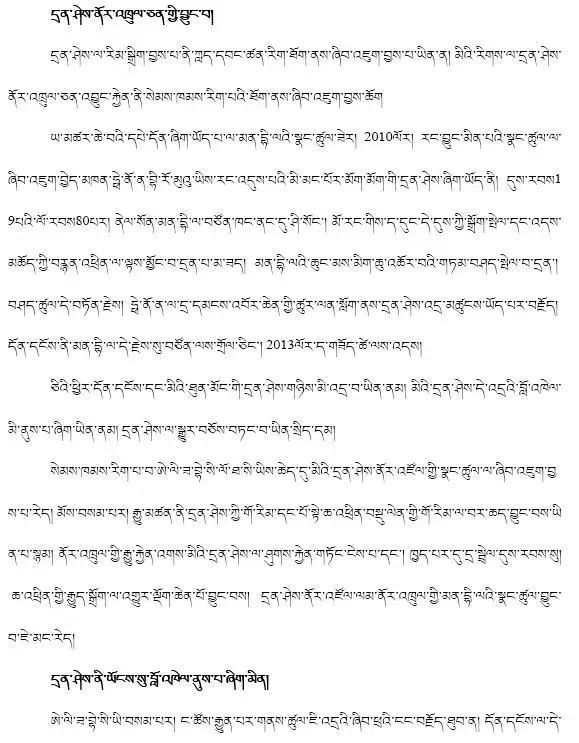 དྲན་ཤེས་ནོར་འཁྲུལ་ཅན་གྱི་བྱུང་བ།
དྲན་ཤེས་ལ་རིམ་སྒྲིག་བྱས་པ་ནི་ཀླད་དབང་ཚན་རིག་ཐོག་ནས་ཞིབ་འཇུག་བྱས་པ་ཡིན་ན། མིའི་རིགས་ལ་དྲན་ཤེས་
ནོར་འཁྲུལ་ཅན་འབྱུང་རྐྱེན་ནི་སེམས་ཁམས་རིག་པའི་ཐོག་ནས་ཞིབ་འཇུག་བྱས་ཆོག
ཡ་མཚར་ཆེ་བའི་དཔེ་དོན་ཞིག་ཡོད་པ་ལ་མན་ཌྷི་ལའི་སྣང་ཚུལ་ཟེར། 2010ལོར། རང་བྱུང་མིན་པའི་སྣང་ཚུལ་ལ་
ཞིབ་འཇུག་བྱེད་མཁན་ཧྥེ་ནོ་ན་བྷི་རོ་མུའུ་ཡིས་རང་འདུས་པའི་མི་མང་པོར་མོག་མོག་གི་དྲན་ཤེས་ཞིག་ཡོད་ནི། དུས་རབས1
9པའི་ལོ་རབས80པར། ནེལ་སོན་མན་ཌྷི་ལ་བཙོན་ཁང་ནང་དུ་ཤི་སོང་། མོ་རང་གིས་ད་དུང་དེ་དུས་ཀྱི་སྒྲོག་སྤེལ་དང་འདས་
མཆོད་ཀྱི་བརྙན་འཕྲིན་ལ་ལྟས་མྱོང་བ་དྲན་པ་མ་ཟད། མན་ཌྷི་ལའི་ཆུང་མས་མིག་ཆུ་འཆོར་བའི་གཏམ་བཤད་སྤེལ་བ་དྲན་།
བཤད་ཚུལ་དེ་བཏོན་རྗེས། ཧྥེ་ནོ་ན་ལ་དྲ་དམངས་འབོར་ཆེན་གྱི་ཚུར་ལན་སློག་ནས་དྲན་ཤེས་འདྲ་མཚུངས་ཡོད་པར་བརྗོད།
དོན་དངོས་ནི་མན་ཌྷི་ལ་དེ་རྗེས་སུ་བཙོན་ལས་གྲོལ་ཅིང་། 2013ལོར་ད་གཟོད་ཚེ་ལས་འདས།
ཅིའི་ཕྱིར་དོན་དངོས་དང་མིའི་ཐུན་མོང་གི་དྲན་ཤེས་གཉིས་མི་འདྲ་བ་ཡིན་ནམ། མིའི་དྲན་ཤེས་དེ་འདྲའི་བློ་འཁེལ་
མི་ནུས་པ་ཞིག་ཡིན་ནམ། དྲན་ཤེས་ལ་སྒྱུར་བཅོས་བཏང་བ་ཡིན་སྲིད་དམ།
སེམས་ཁམས་རིག་པ་བ་ཨེ་ལི་ཟ་བྷེ་སི་ལོ་ཐ་སི་ཡིས་ཆེད་དུ་མིའི་དྲན་ཤེས་ནོར་འཛོལ་གྱི་སྣང་ཚུལ་ལ་ཞིབ་འཇུག་བྱ
ས་པ་རེད། མོས་བསམ་པར། རྒྱུ་མཚན་ནི་དྲན་ཤེས་ཀྱི་གོ་རིམ་དང་པོ་སྟེ་ཆ་འཕྲིན་བསྡུ་ལེན་གྱི་གོ་རིམ་ལ་བར་ཆད་བྱུང་བས་ཡི
ན་པ་སྙམ། ནོར་འཁྲུལ་གྱི་རྒྱུ་རྐྱེན་འགས་མིའི་དྲན་ཤེས་ལ་ཤུགས་རྐྱེན་གཏོང་ངེས་པ་དང་། ཁྱད་པར་དུ་དྲ་སྦྲེལ་དུས་རབས་སུ།
ཆ་འཕྲིན་གྱི་རྒྱུད་སྒྲོག་ལ་འགྱུར་ལྡོག་ཆེན་པོ་བྱུང་བས། དྲན་ཤེས་ནོར་འཛོལ་ལམ་ནོར་འཁྲུལ་གྱི་མན་ཌྷི་ལའི་སྣང་ཚུལ་བྱུང་
བ་ཇེ་མང་རེད།
དྲན་ཤེས་ནི་ཡོངས་སུ་བློ་འཁེལ་ནུས་པ་ཞིག་མིན།
ཨེ་ལི་ཟ་བྷེ་སི་ཡི་བསམ་པར། ང་ཚོས་རྒྱུན་པར་གནས་ཚུལ་ཇི་འདྲའི་ཞིབ་ཕྲའི་ངང་བརྗོད་ཐུབ་ན། དོན་དངོས་ལ་དེ་